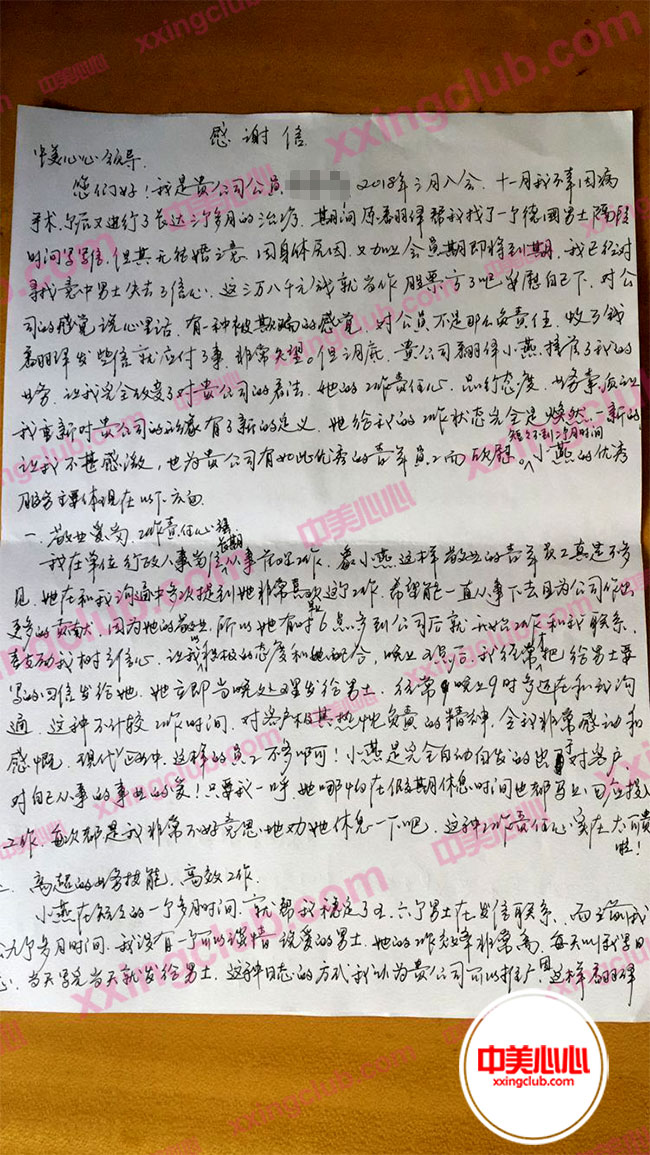 感谢信
中美心心领导
您们好！我是贵公司会员 2018年三月入会，十一月我不幸因病
手术，尔后又进行了长达三个多月的治疗，期间原翻译帮我找了一个德国男士隔段
时间写写信，但其无结婚之意，因身体原因，又加上会员期即将到期，我已经对
寻我意中男士失去了信心，这三万八千元钱就当作股票亏了吧安慰自己下，对公
司的感觉说心里话，有一种被欺骗的感觉，对会员不是那么负责任，收了钱
翻译发些信就应付了事，非常失望。但三月底，贵公司翻译小燕接管了我的
业务，让我完全改变了对贵公司的看法，她的工作责任心，品行态度，业务素质让
我重新对贵公司的形象有了新的定义，她给我的工作状态完全是焕然一新的
短短不到二个月时间
让我不甚感激，也为贵公司有如此优秀的青年员工而欣慰。小燕的优秀
服务主要体现在以下方面
一、敬业爱岗，工作责任心强
我在单位行政人事岗位长期从事管理工作，像小燕这样敬业的青年员工真是不多
见，她在和我沟通中多次提到她非常喜欢这个工作，希望能一直从事下去且为公司作出
更多的贡献，因为她的敬业，所以她有时6点多到公司后就开始工作和我联系，
鼓动我树立信心，让我以积极的态度和她配合，晚上8点后，我经常把给男士要
写的回信发给她，她立即当晚处理发给男士，经常晚上9时多还在和我沟
通，这种不计较工作时间，对客户极其热忱负责的精神，令我非常感动和
感慨，现代社会中，这样的员工不多啊可！小燕是完全自动自发的出于对客户
对自己从事的事业的爱！只要我一呼，她哪怕在假期休息时间也都马上回应投入
工作，每次都是我非常不好意思地劝她休息一下吧，这种工作责任心实在太可贵
啦！
二、高超的业务技能，高效工作
小燕在短短的一个多月时间，就帮我稳定了五、六个男士在发信联系，而之前我
九个多月时间，我没有一个可以谈情说爱的男士，她的工作效率非常高，每天叫我写日
志，当天写完当天就发给男士，这种日志的方式我认为贵公司可以推广，因这样翻译
中美心心
xxingclub.com